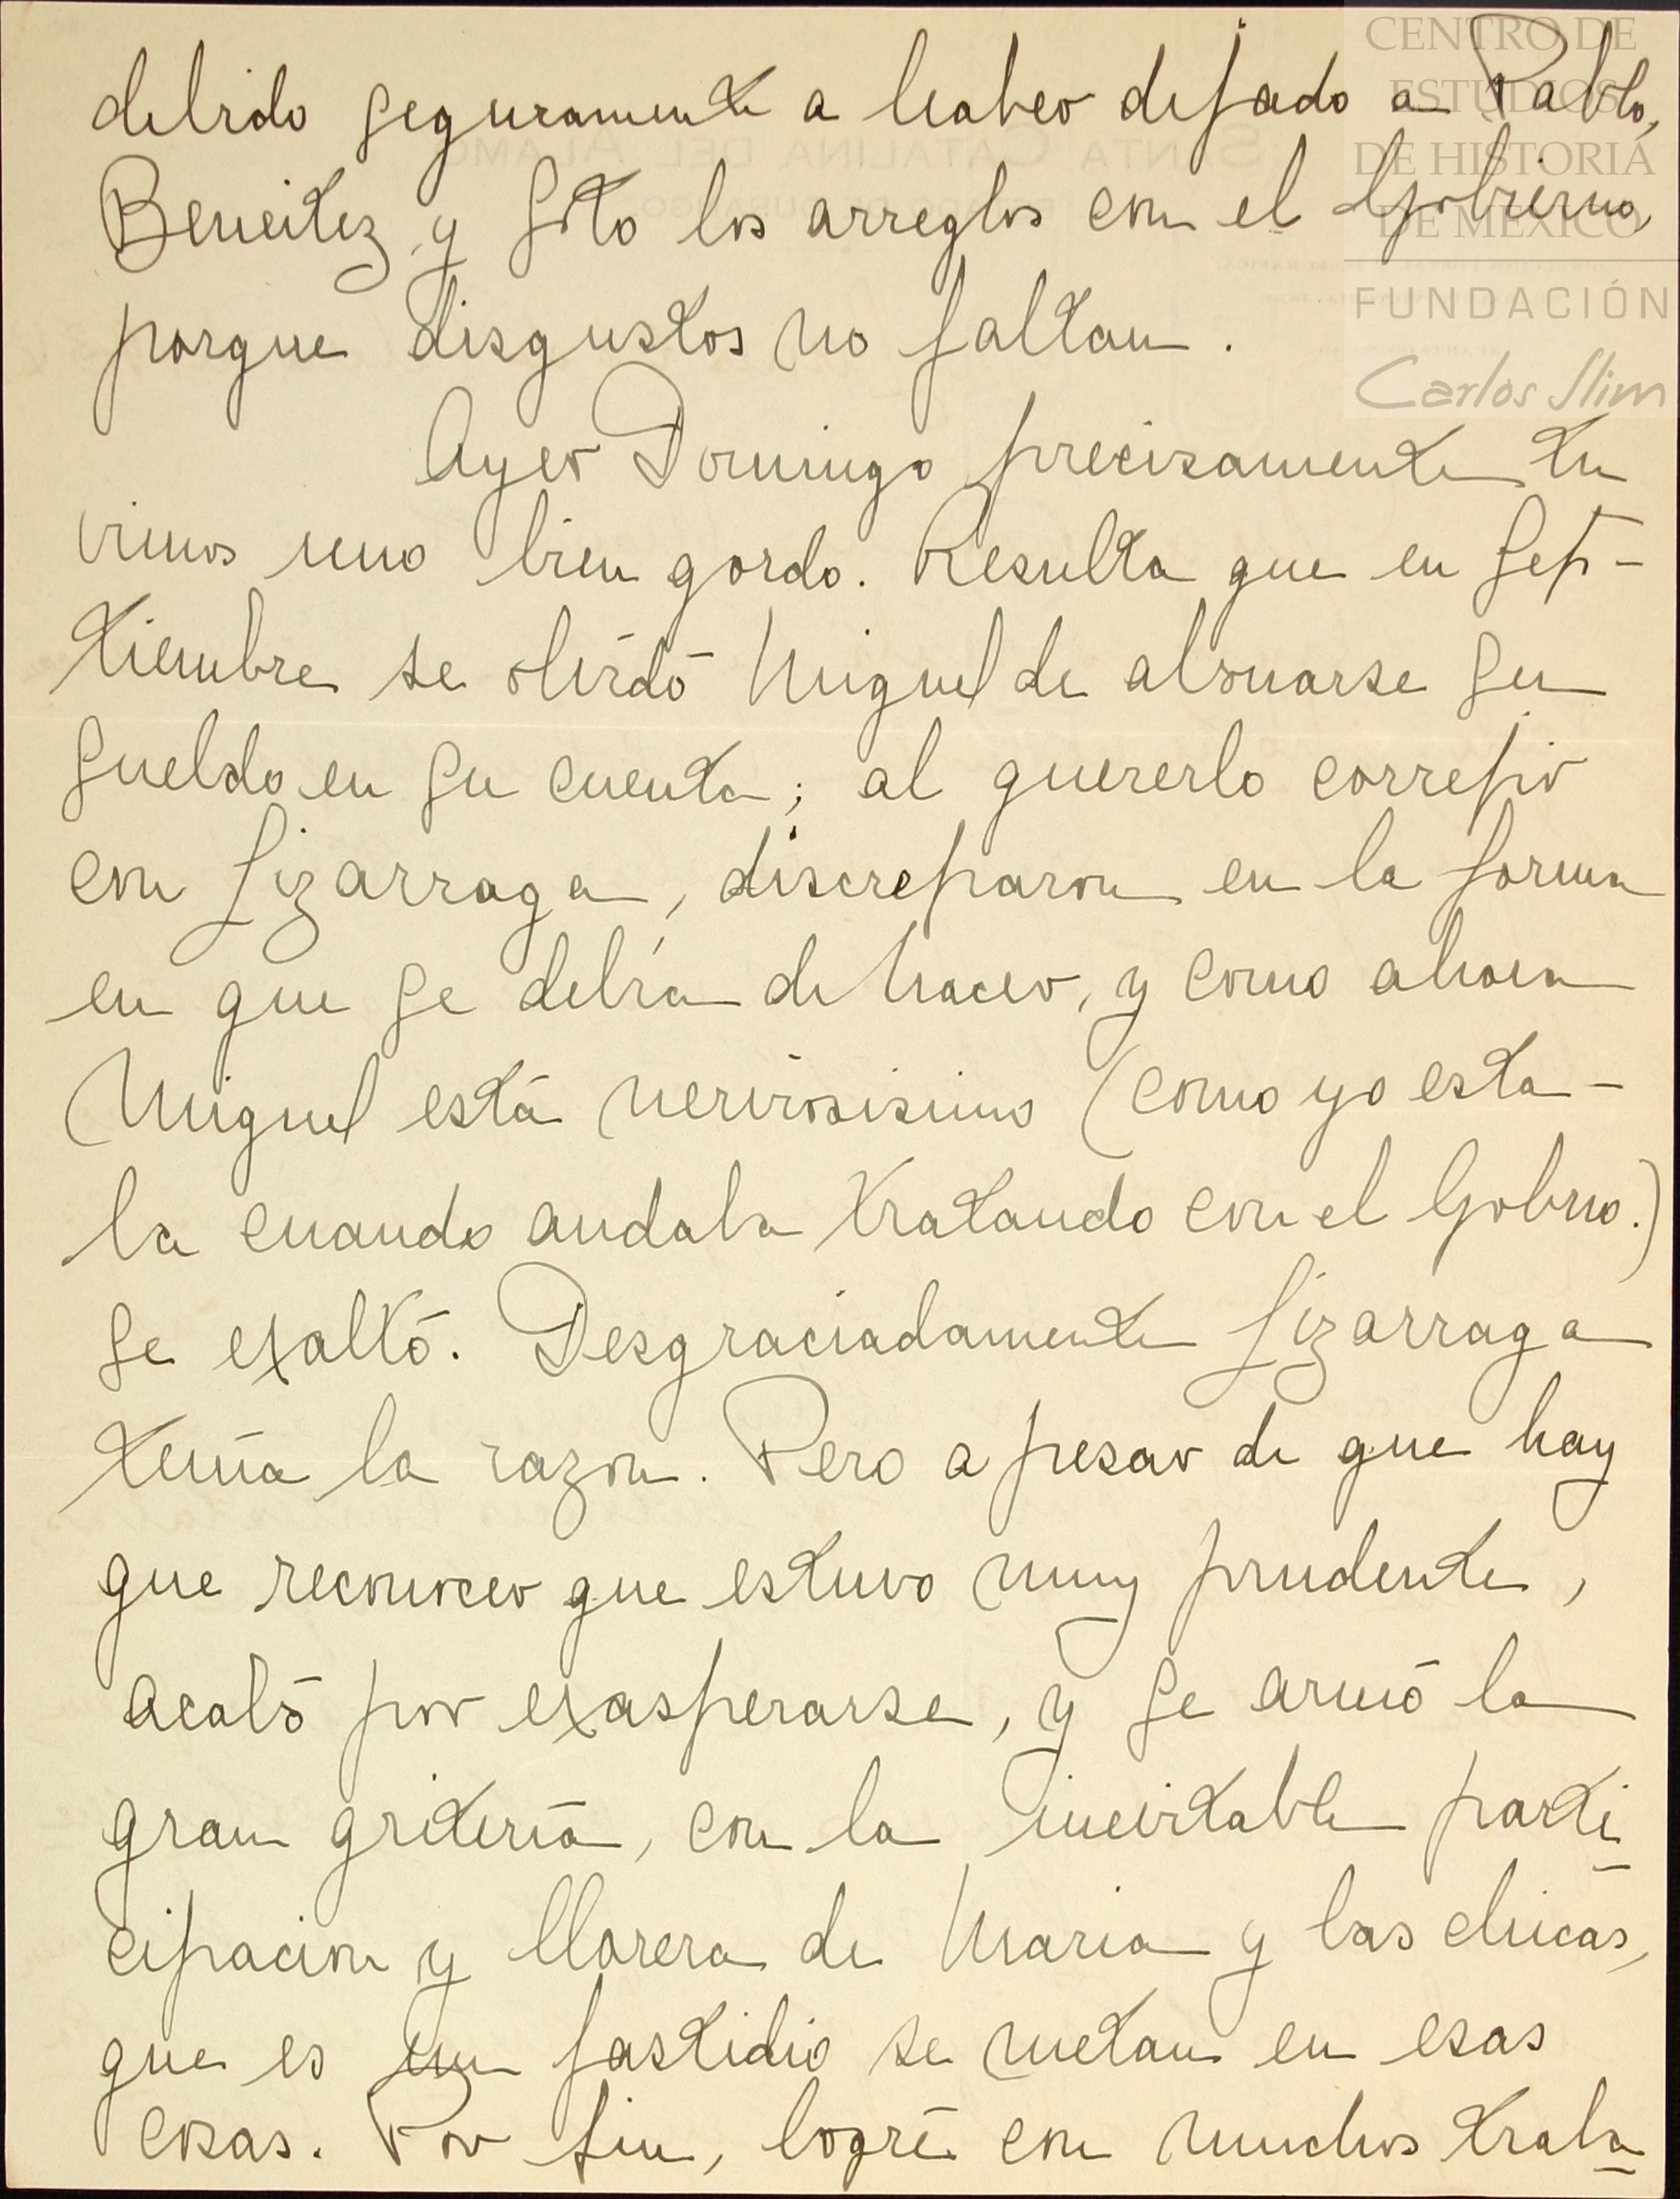 debido seguramente a haber dejado a Pablo,
Beneitez y Soto los arreglos con el Gobierno,
porque disgustos no faltan.
Ayer Domingo precisamente tu
vimos uno bien gordo. Resulta que en Sep-
tiembre se olvidó Miguel de abonarse su
sueldo en su cuenta; al quererlo correjir
con Lizarraga, discreparon en la forma
en que se debía de hacer, y como ahora
Miguel está nerviosisimo (como yo esta-
ba cuando andaba tratando con el Gobno.)
se exaltó. Desgraciadamente Lizarraga
tenía la razon. Pero a pesar de que hay
que reconocer que estuvo muy prudente,
acabó por exasperarse, y se armó la
gran gritería, con la inevitable parti
cipacion y llorera de Maria y las chicas,
que es un fastidio se metan en esas
cosas. Por fin, logré con muchos traba
CENTRO DE
ESTUDIOS
DE HISTORIA
DE MÉXICO
FUNDACIÓN
Carlos Slim
SANTA CATALINA DEL ALAMO